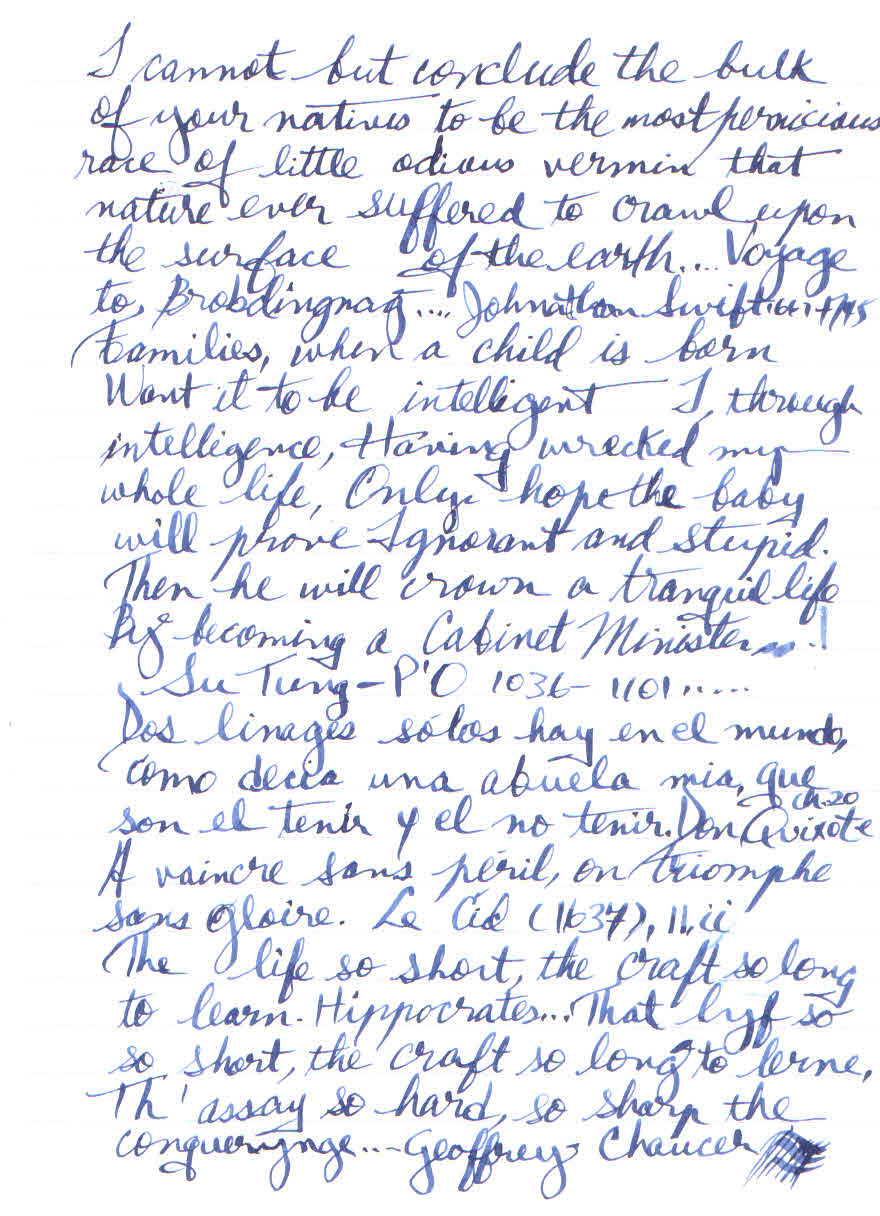 I cannot but conclude the bulk
of your natives to be the most pernicious
race of little odious vermin that
nature ever suffered to crawl upon
the surface of the earth.... Voyage
to Brobdingnag.... Johnathan Swift
Families, when a child is born
Want it to be intelligent I, through
intelligence, Having wrecked my
whole life, Only hope the baby
will prove Ignorant and stupid.
Then he will crown a tranquil life
By becoming a Cabinet Minister...!
Su Tung-P'O 1036-1101.....
Dos linages sólos hay en el mundo,
como decia una abuela mia, que
son el tenir y el no tenir. Don Quixote ch.20
A vaincre sans péril, on triomphe
sans gloire. Le Cid (1637), II.ii
The life so short, the craft so long
to learn. Hippocrates... That lyf so
so short, the craft so long to lerne,
Th' assay so hard, so sharp the
conquerynge...-Geoffrey Chaucer